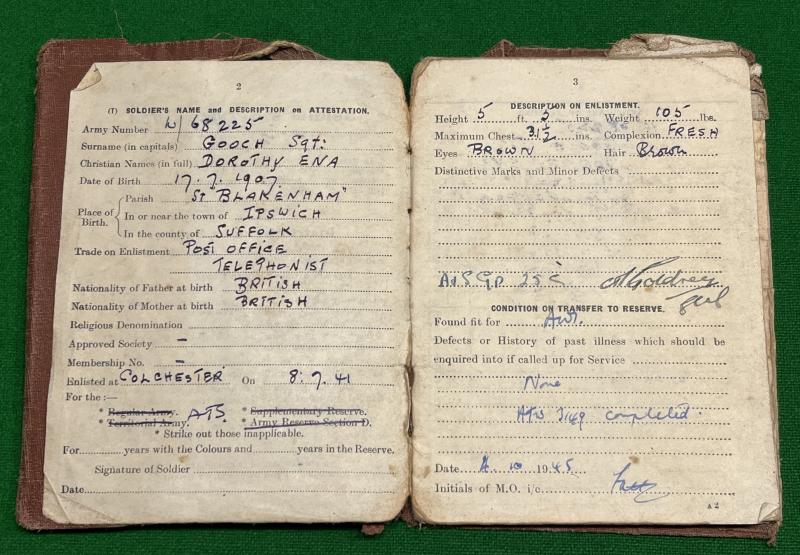 2
(1) SOLDIER'S NAME and DESCRIPTION on ATTESTATION.
Army Number W/68225
Surname (in capitals) GOOCH Sgt.
Christian Names (in full) DOROTHY ENA
Date of Birth 17.7.1907
Place of Birth. Parish St "BLAKENHAM"
In or near the town of IPSWICH
In the county of SUFFOLK
Trade on Enlistment POST OFFICE
TELEPHONIST
Nationality of Father at birth BRITISH
Nationality of Mother at birth BRITISH
Religious Denomination
Approved Society —
Membership No. —
Enlisted at COLCHESTER On 8.7.41
For the :—
* Regular Army. ATS * Supplementary Reserve.
* Territorial Army. * Army Reserve Section D.
* Strike out those inapplicable.
For years with the Colours and years in the Reserve.
Signature of Soldier
Date
3
DESCRIPTION ON ENLISTMENT.
Height 5 ft. 3 ins. Weight 105 lbs.
Maximum Chest 31½ ins. Complexion FRESH
Eyes BROWN Hair Brown
Distinctive Marks and Minor Defects
CONDITION ON TRANSFER TO RESERVE.
Found fit for
Defects or History of past illness which should be
enquired into if called up for Service
None
completed.
Date 4.10.1945
Initials of M.O. i/c
A 2